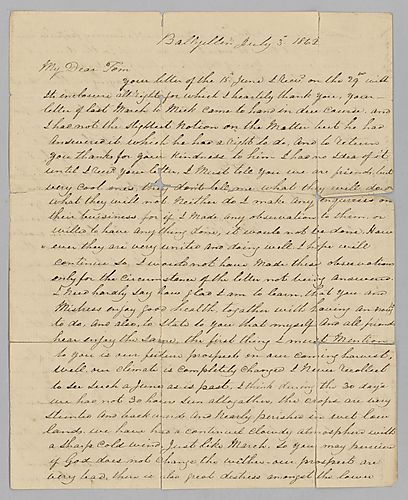 Ballyellin July 3rd 1862
My Dear Tom
your letter of the 15th June I Recd on the 29th with
its enclosure all right for which I heartily thank you, your
letter of last March to Mick came to hand in due course, and
I had not the slightest Notion on the Matter but he had
Answered it which he has a right to do, And to return
you thanks for your kindness to him I had no Idea of it
until I Recd your letter, I Must tell you we are friends, but
very cool ones, they don't tell me what they will do or
what they will not Neither do I make Any enquiries on
their business for if I Made any observation to them, or
wished to have Any thing done, it would not be done. How
ever they are very united and doing well. I hope will
continue so, I would not have Made these observations
only for the circumstance of the letter not being Answered
I Need hardly say how glad I am to learn, that you And
Mistress enjoy good health, together with having an
to do. And also, to state to you that myself And all friends
hear enjoy the Same, the first thing I must Mention
to you is our future prospects in our coming harvest,
Well, our climate is completely changed I Never Recollect
to see such a June as is past, I think during the 30 days
we had not 30 hours Sun altogather, the crops are very
stunted And backward, And Nearly perished in wet low
lands, we have had a continual cloudy atmosphere with
a sharp cold wind Just like March. So you may perceive
if God does not change the wither our prospects are
very bad, there is also great distress amongst the lower